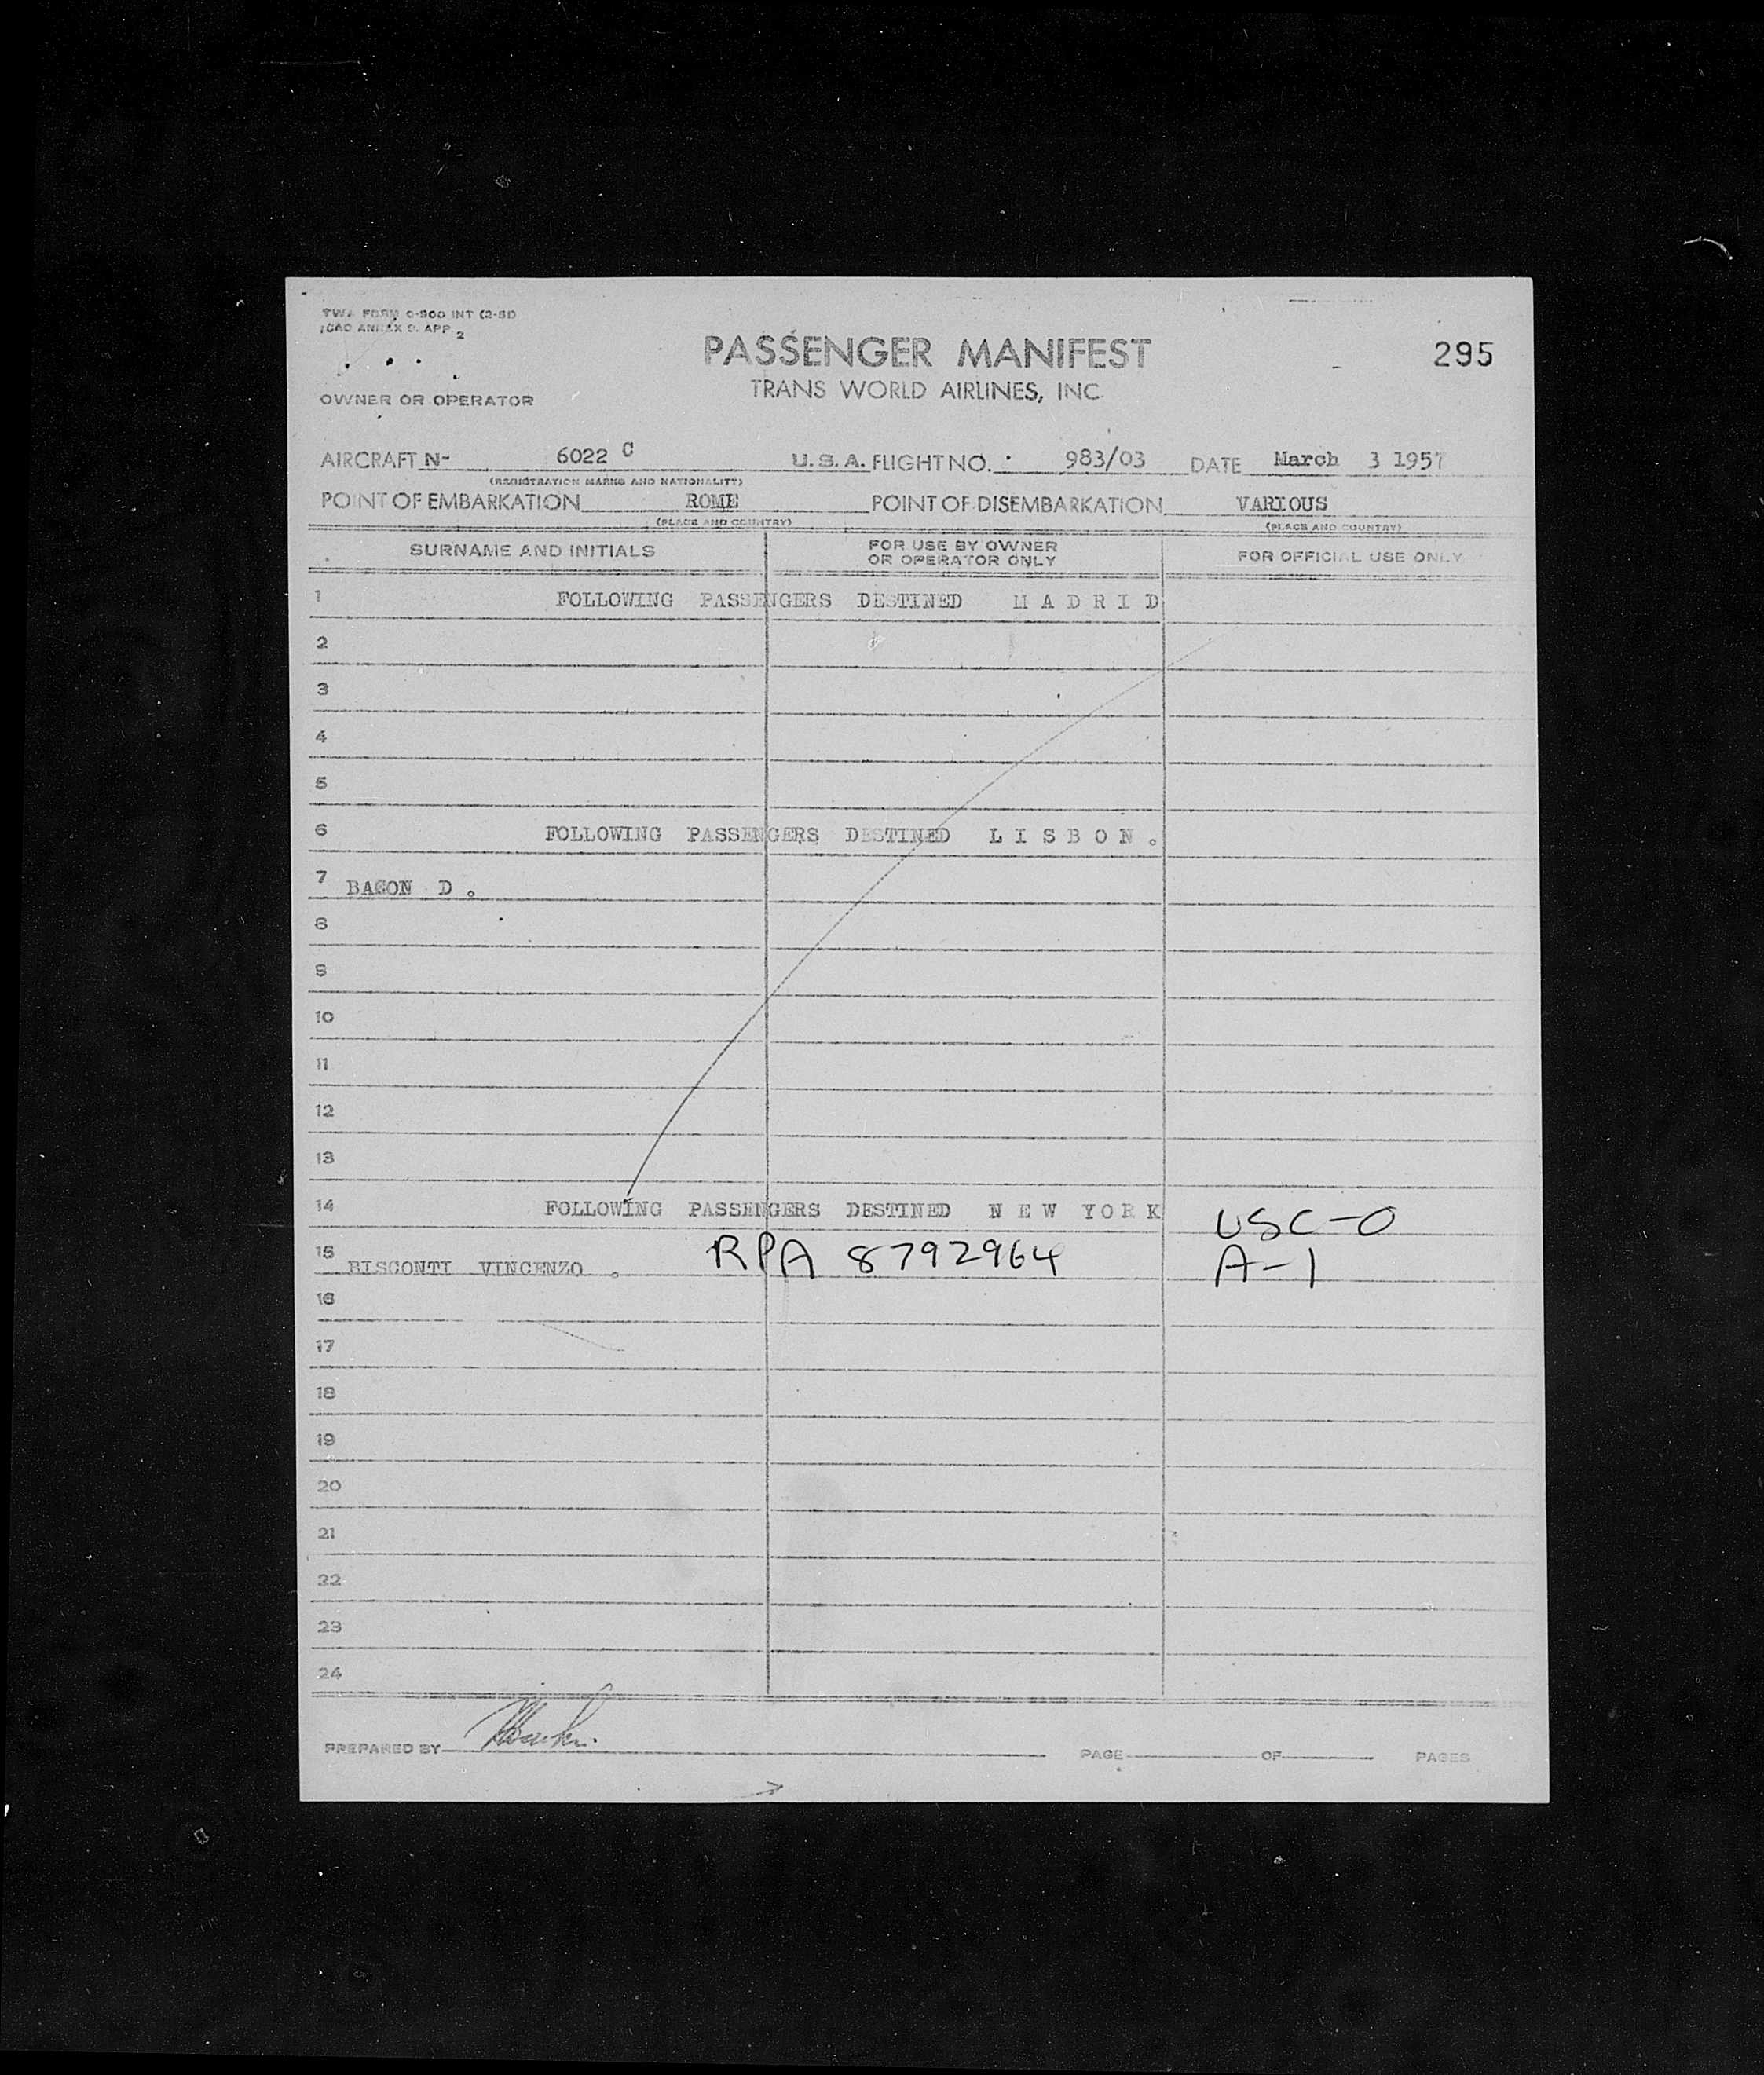 TWA FORM 0-800 INT (2-51)
ICAO ANNEX 9. APP 2
PASSENGER MANIFEST
295
TRANS WORLD AIRLINES, INC.
OWNER OR OPERATOR
AIRCRAFT N- 6022 C U.S.A. FLIGHT NO. 983/03 DATE March 3 1957
(REGISTRATION MARKS AND NATIONALITY)
POINT OF EMBARKATION ROME POINT OF DISEMBARKATION VARIOUS
(PLACE AND COUNTRY) (PLACE AND COUNTRY)
SURNAME AND INITIALS FOR USE BY OWNER OR OPERATOR ONLY FOR OFFICIAL USE ONLY
1 FOLLOWING PASSENGERS DESTINED M A D R I D
2
3
4
5
6 FOLLOWING PASSENGERS DESTINED L I S B O N .
7 BACON D .
8
9
10
11
12
13
14 FOLLOWING PASSENGERS DESTINED N E W Y O R K USC-0
15 BISCONTI VINCENZO . RPA 8792964 A-1
16
17
18
19
20
21
22
23
24
PREPARED BY PAGE OF PAGES